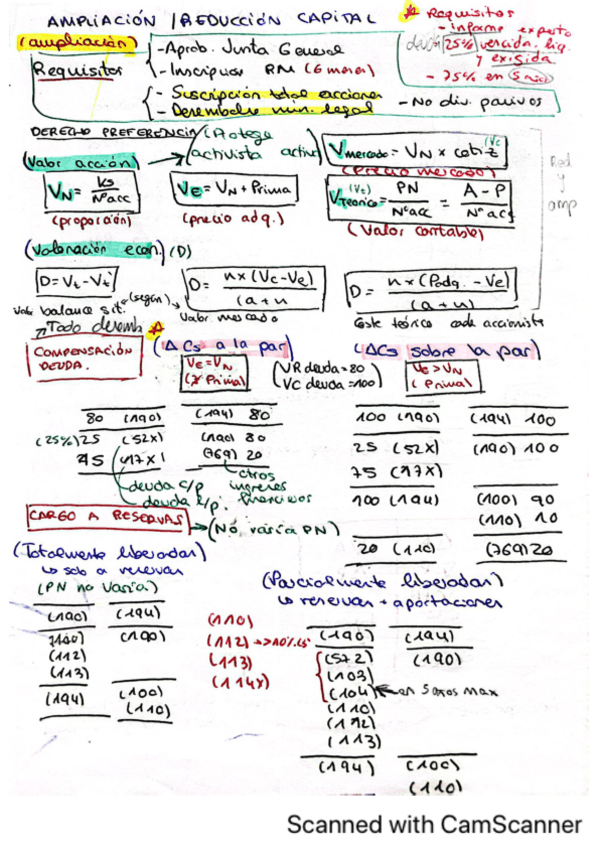 AMPLIACIÓN / REDUCCIÓN CAPITAL
* Requisitos
- informe experto
deuda 25% vencida, liq.
y exigida
- 75% en 5 años
(ampliación)
Requisitos
- Aprob. Junta General
- Inscripción RM (6 meses)
- Suscripción total acciones
- Desembolso mín. legal
- No div. pasivos
DERECHO PREFERENCIA (Protege
activista activo)
(Valor acción)
Vmercado = VN x cotiz (Vc)
(Precio mercado)
Red
y
amp
VN = KS / Nº acc
(proporción)
VE = VN + Prima
(precio adq.)
(Vt)
Vteórico = PN / Nº acc = A - P / Nº acc
(Valor contable)
(Valoración econ.) (D)
D = Vt - Vt'
D = n x (Vc - Ve) / (a + n)
D = n x (Padq. - Ve) / (a + n)
Valor balance sit. (según)
Valor mercado
Coste teórico cada accionista
Todo desemb *
COMPENSACIÓN
DEUDA.
(Δ Cs a la par)
VE = VN
(X Prima)
(VR deuda = 80
VC deuda = 100)
(ΔCs sobre la par)
VE > VN
( Prima)
80 (190) (194) 80
(25%) 25 (52X) (190) 80
75 (17X) (769) 20
deuda c/p
deuda l/p.
otros
ingresos
financieros
100 (190) (194) 100
25 (52X) (190) 100
75 (17X)
100 (194) (100) 90
(110) 10
20 (110) (769) 20
CARGO A RESERVAS → (No varía PN)
(Totalmente liberadas)
↳ solo a reservas
(PN no varía)
(190) (194)
(100) (190)
(112)
(113)
(194) (100)
(110)
(110)
(112) → >10% CS
(113)
(114X)
(Parcialmente liberadas)
↳ reservas + aportaciones
(190) (194)
(572) (190)
(103)
(104) ← en 5 años max
(110)
(112)
(113)
(194) (100)
(110)
Scanned with CamScanner